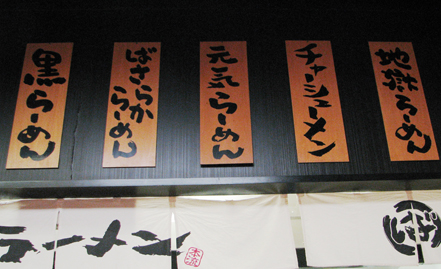 黒らーめん
ばさらか
らーめん
元気らーめん
チャーシューメン
地獄らーめん
ラーメン